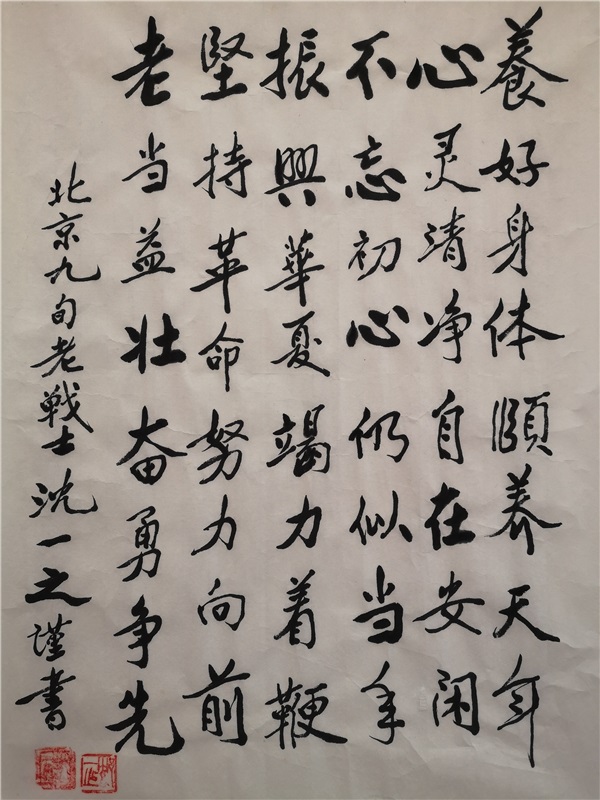 養好身体頤养天年
心灵清净自在安闲
不忘初心仍似当年
振興華夏竭力着鞭
堅持革命努力向前
老当益壮奋勇争先
北京九旬老戦士沈一之謹書